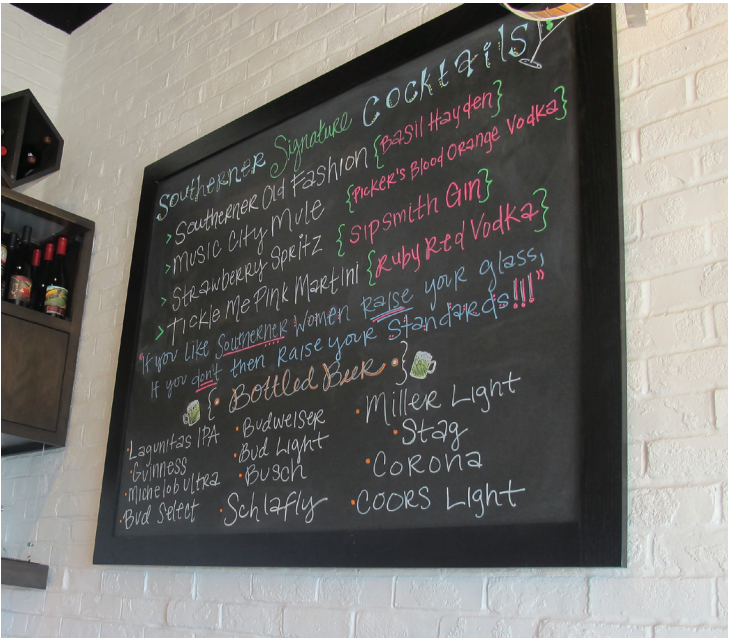 Southerner Signature Cocktails!
> Southerner Old Fashion {Basil Hayden}
> Music City Mule {Picker's Blood Orange Vodka}
> Strawberry Spritz {Sipsmith Gin}
> Tickle Me Pink Martini {Ruby Red Vodka}
"If you like Southerner women raise your glass,
If you don't then raise your standards!!!"
{• Bottled Beer •}
• Lagunitas IPA • Budweiser • Miller Light
• Guinness • Bud Light • Stag
• Michelob Ultra • Busch • Corona
• Bud Select • Schlafly • Coors Light